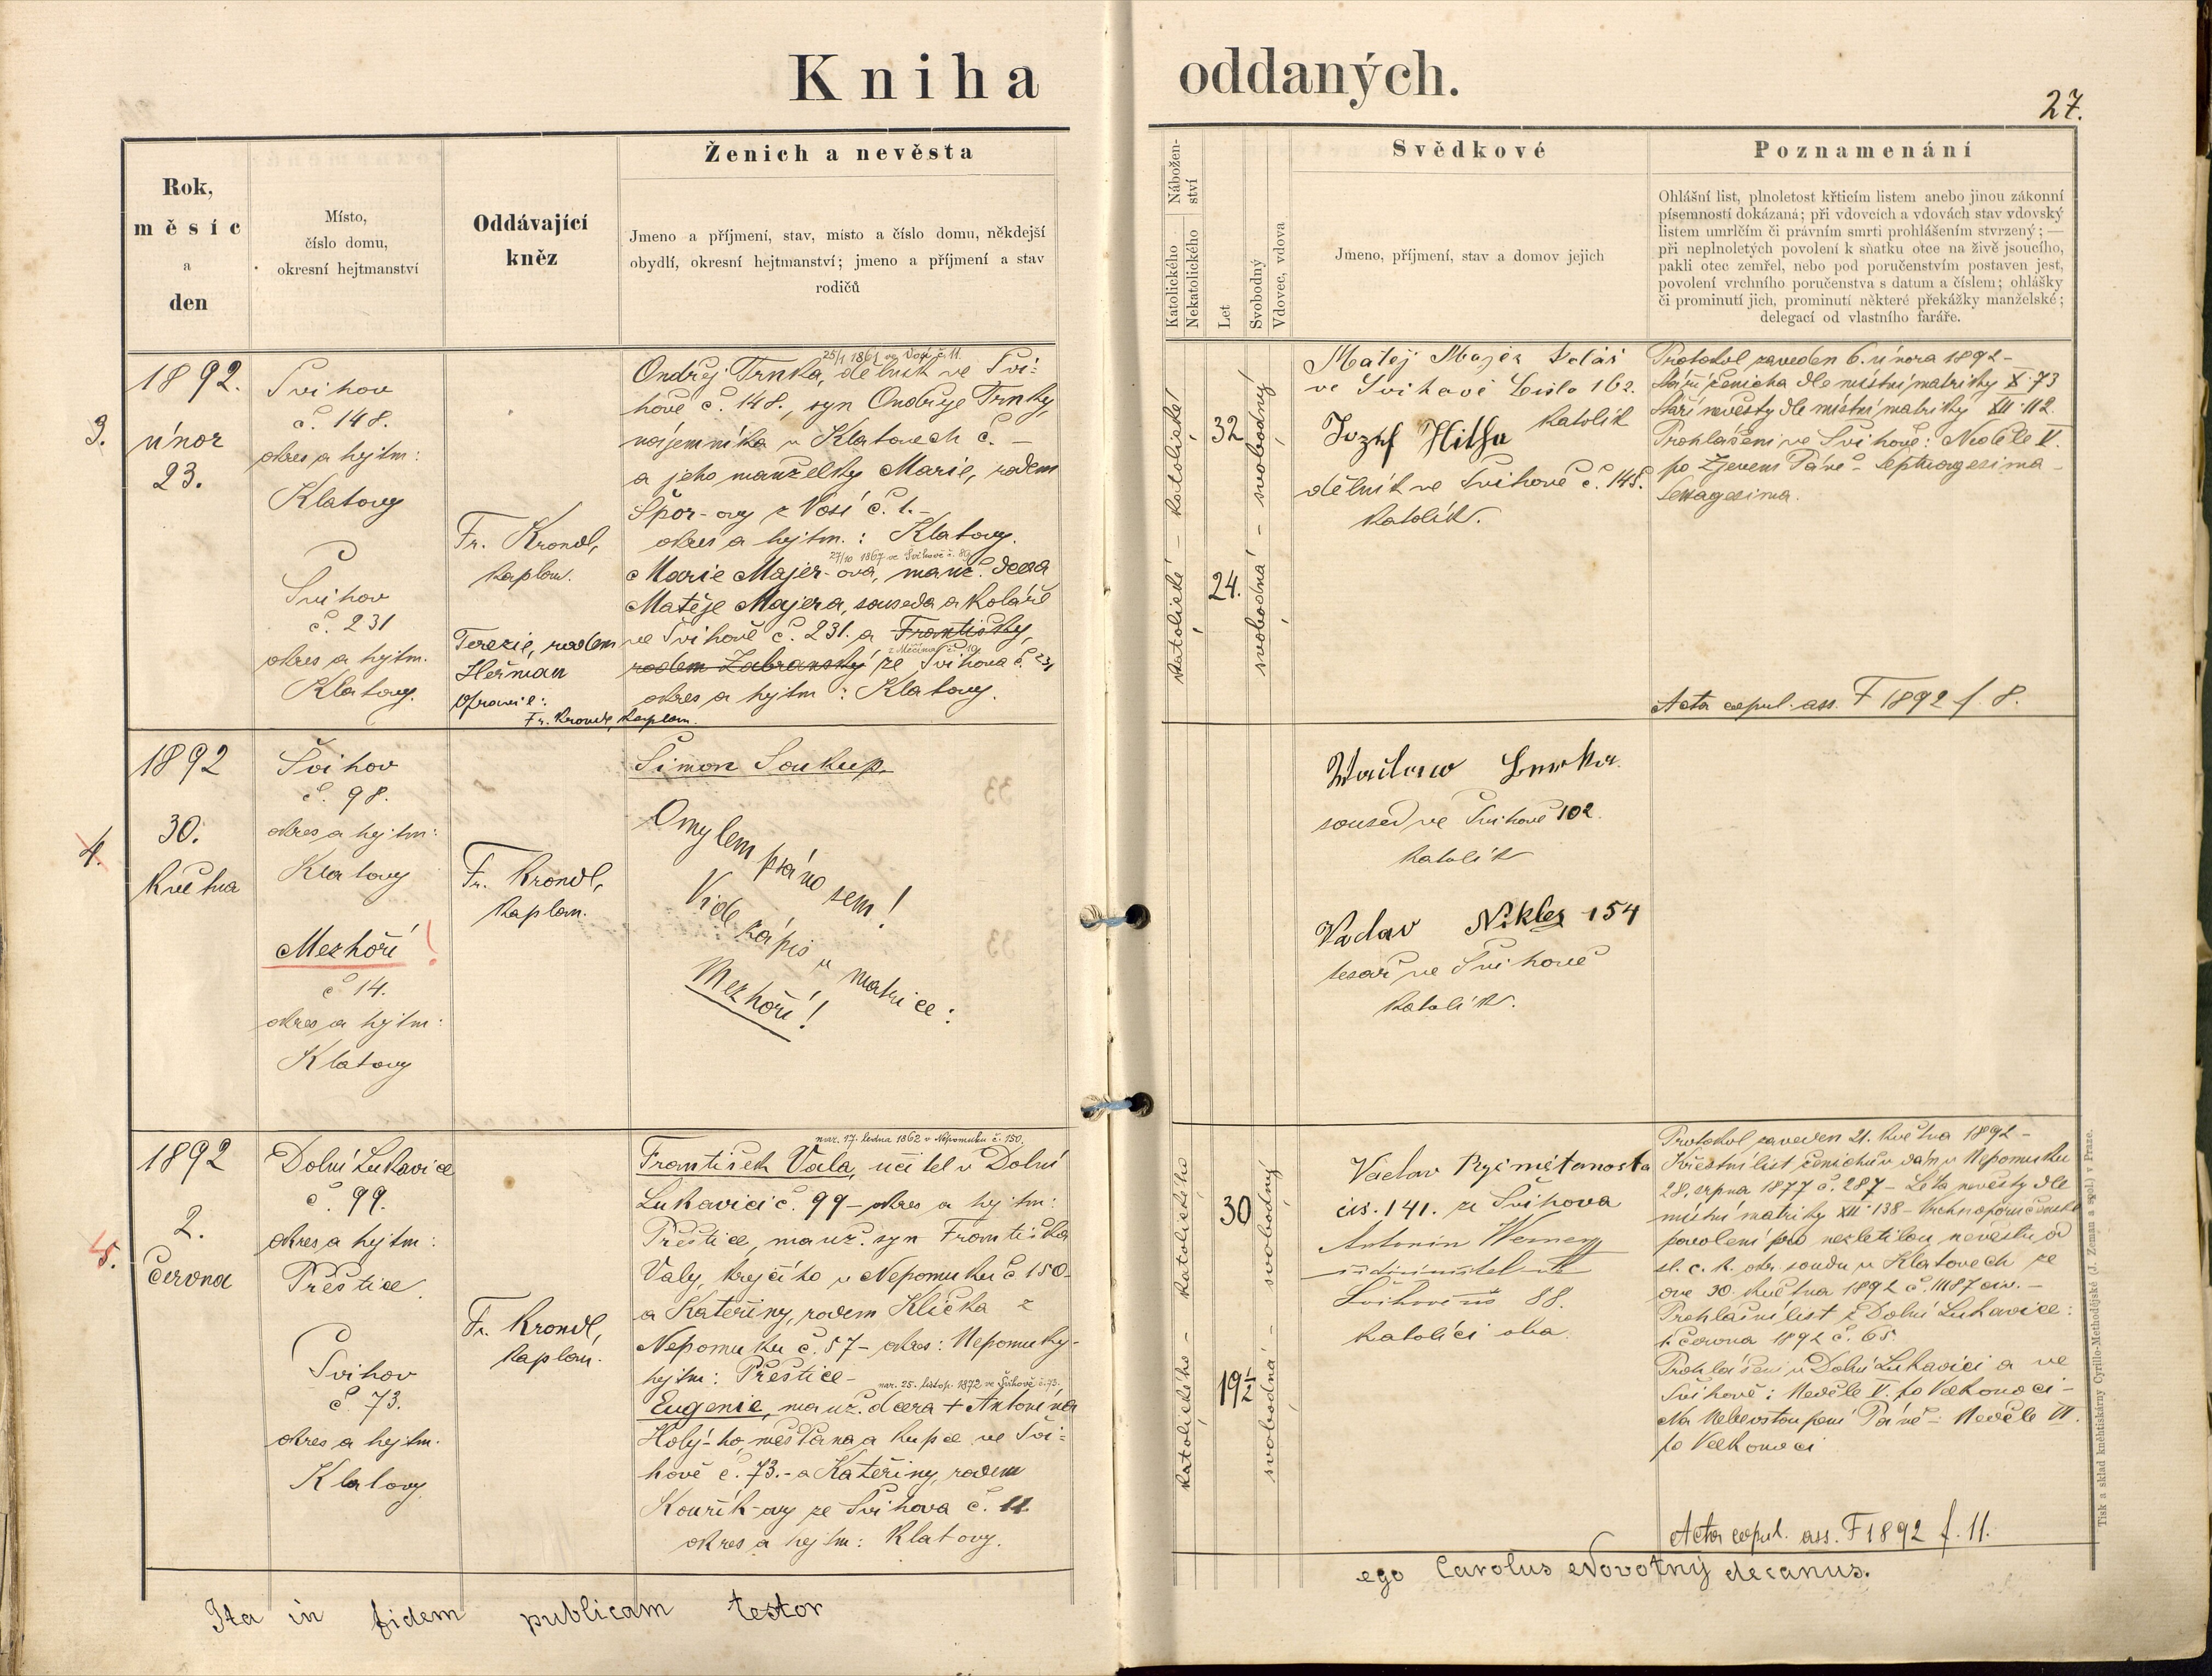 Kniha oddaných.
27.
Rok,
měsíc
a
den
Místo,
číslo domu,
okresní hejtmanství
Oddávající
kněz
Ženich a nevěsta
Jmeno a příjmení, stav, misto a číslo domu, někdejší
obydlí, okresní hejtmanství; jmeno a příjmení a stav
rodičů
Nábožen-
ství
Katolického
Nekatolického
Let
Svobodný
Vdovec, vdova
Svědkové
Jmeno, příjmení, stav a domov jejich
Poznamenání
Ohlášní list, plnoletost křticím listem anebo jinou zákonní
písemností dokázaná; při vdovcích a vdovách stav vdovský
listem umrlčím či právním smrti prohlášením stvrzený; —
při neplnoletých povolení k sňatku otce na živě jsoucího,
pakli otec zemřel, nebo pod poručenstvím postaven jest,
povolení vrchního poručenstva s datum a číslem; ohlášky
či prominutí jich, prominutí některé překážky manželské;
delegací od vlastního faráře.
3.
1892.
únor
23.
Švihov
č. 148.
okres a hejtm:
Klatovy
Švihov
č. 231
okres a hejtm.
Klatovy.
Fr. Krondl,
kaplan.
Terezie, rodem
Heřman
Opravil:
Fr. Krondl, kaplan.
25/1 1861 ve Vosí č. 11.
Ondřej Trnka, dělník ve Švi-
hově č. 148., syn Ondřeje Trnky,
nájemníka v Klatovech č. –
a jeho manželky Marie, rodem
Špor-ovy z Vosí č. 1.-
okres a hejtm.: Klatovy.
27/10 1867 ve Švihově č. 89
Marie Majer-ová, manž. dcera
Matěje Majera, souseda a koláře
ve Švihově č. 231. a Františky,
rodem Zabranský ze Švihova č. 231
z Měčína č. 19
okres a hejtm: Klatovy.
katolické – katolické!
32
24.
svobodná – svobodný!
Matěj Majer kolář
ve Švihově číslo 162.
katolík
Jozef
dělník ve Švihově č. 148.
katolík.
Protokol zaveden 6. února 1892 –
Stáří ženicha dle místní matriky X. 73
Stáří nevěsty dle místní matriky XII. 112.
Prohlášení ve Švihově: Neděle V.
po Zjevení Páně – Septuagesima –
Sexagesima.
Acta copul. ass. F 1892 f. 8.
4.
1892
30.
května
Švihov
č. 98.
okres a hejtm:
Klatovy
Mezhoří!
č. 14.
okres a hejtm:
Klatovy
Fr. Krondl,
kaplan.
Šimon Soukup.
Omylem psáno sem!
Vide zápis v matrice:
Mezhoří!
soused ve Švihově 102.
katolík
Vaclav Nikles 154
tesař ve Švihově
katolík.
5.
1892
2.
června
Dolní Lukavice
č. 99.
okres a hejtm:
Přeštice.
Švihov
č. 73.
okres a hejtm.
Klatovy
Fr. Krondl,
kaplan.
nar. 17. ledna 1862 v Nepomuku č. 150.
František Vala, učitel v Dolní
Lukavici č. 99 – okres a hejtm:
Přeštice, manž. syn Františka
Valy, krejčího v Nepomuku č. 150.
a Kateřiny, rodem Klička z
Nepomuku č. 57 – okres: Nepomuky-
hejtm: Přeštice –
nar. 25. listop. 1872 ve Švihově č. 73.
Eugenie, manž. dcera + Antonína
Holý-ho, měšťana a kupce ve Švi-
hově č. 73. – a Kateřiny, rodem
Kouřík-ovy ze Švihova č. 11.
okres a hejtm: Klatovy.
katolického – katolického
30
19½
svobodná – svobodný
Václav
čís. 141. ze Švihova
Antonín Werner
Švihově 88.
katolíci oba.
Protokol zaveden 21. května 1892 –
Křestní list ženichův dán v Nepomuku
28. srpna 1877 č. 287 – Léta nevěsty dle
místní matriky XII. 138 – Vrchnoporučenské
povolení pro nezletilou nevěstu od
sl. c. k. okr. soudu v Klatovech ze
dne 30. května 1892 č. 1187 civ. –
Prohlášní list z Dolní Lukavice:
1. června 1892 č. 65
Prohlášení v Dolní Lukavici a ve
Švihově: Neděle V. po Velkonoci –
Na Nebevstoupení Páně – Neděle VI.
po Velkonoci
Acta copul. ass. F 1892 f. 11.
Ita in fidem publicam testor ego Carolus Novotný decanus.
Tisk a sklad kněhtiskárny Cyrillo-Methodějské (J. Zeman a spol.) v Praze.